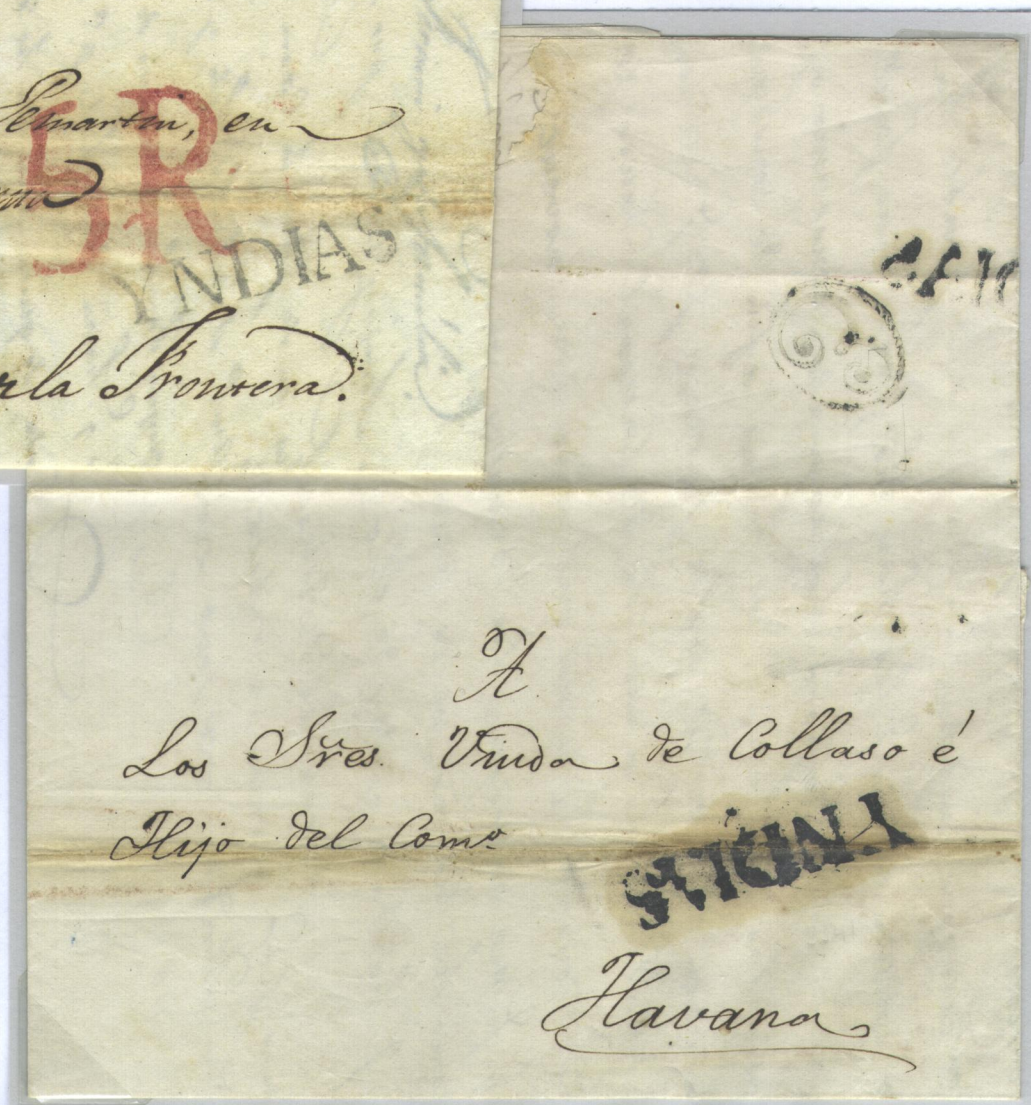 Pemartin, en
5R
YNDIAS
la Frontera.
A
Los Sres. Viuda de Collaso é
Hijo del Como
YNDIAS
Havana